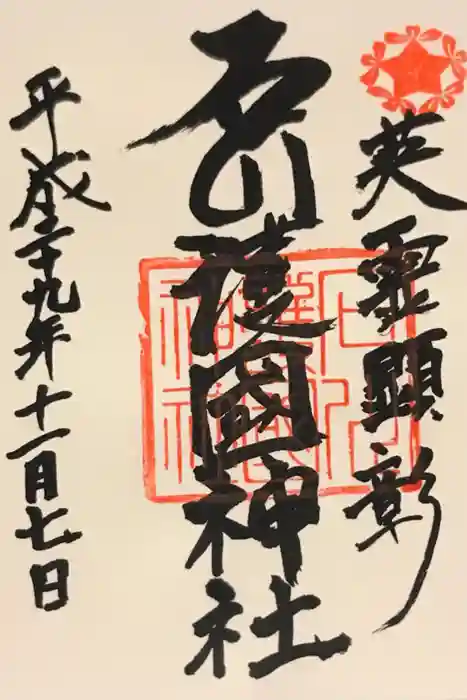 英霊顕彰
石川護國神社
平成二十九年十一月七日